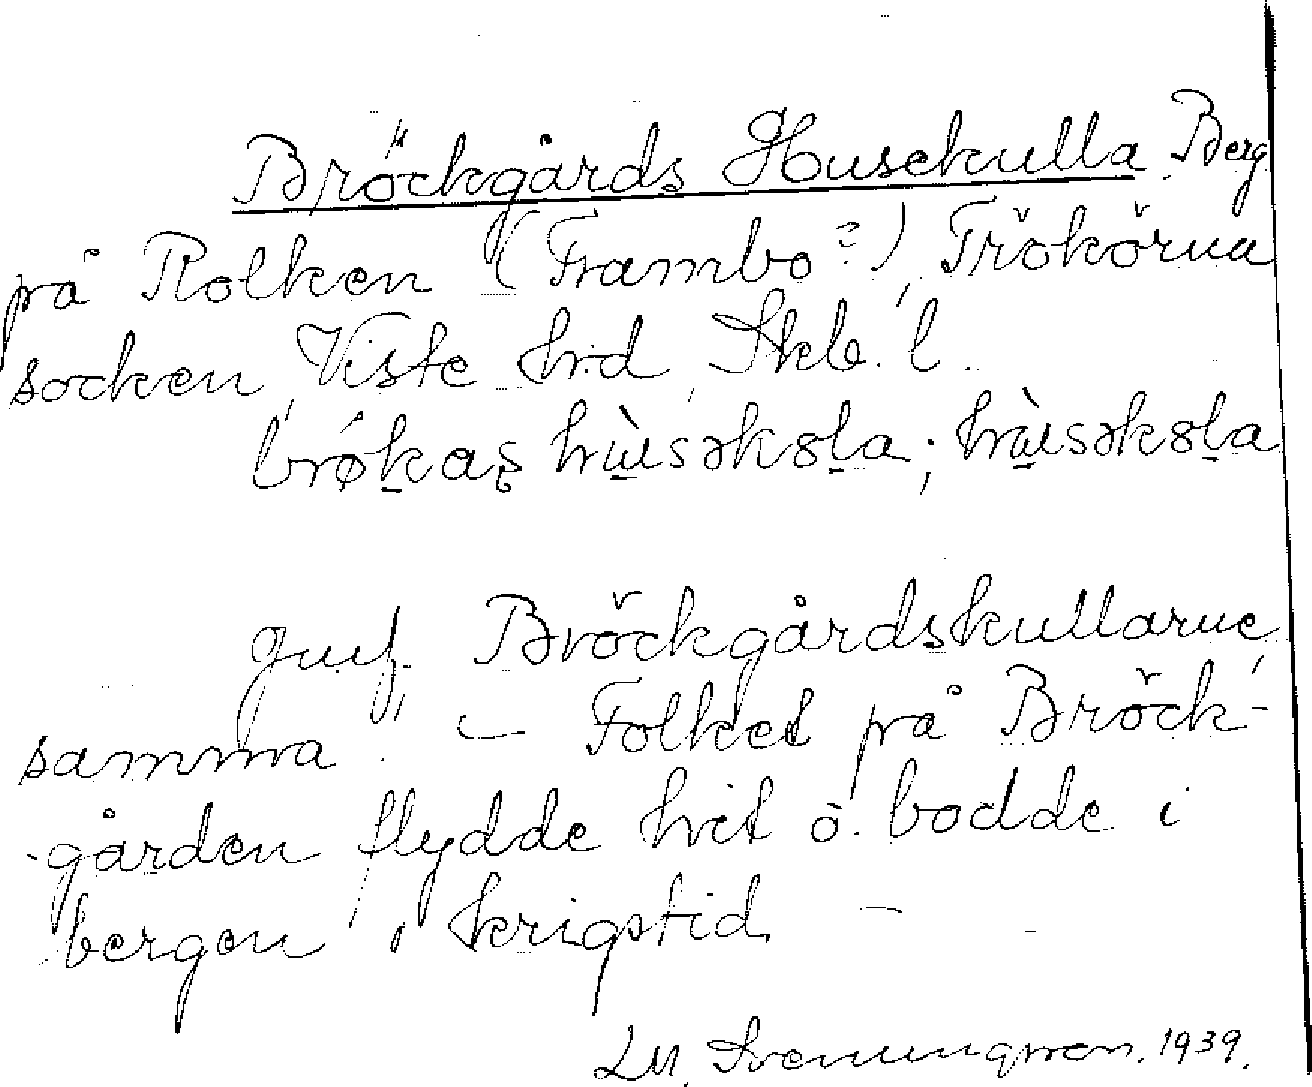 Bröckgårds Husekulla Berg
på Rolken (Frambo?), Frökörna
socken, Viste hrd, Skb. l.
brø̀kas hùsəkola; hùsəkola
Jmf. Bröckgårdskullarne,
samma. – Folket på Bröck-
gården flydde hit o. bodde i
bergen i krigstid –
LM. Svenungsson. 1939.